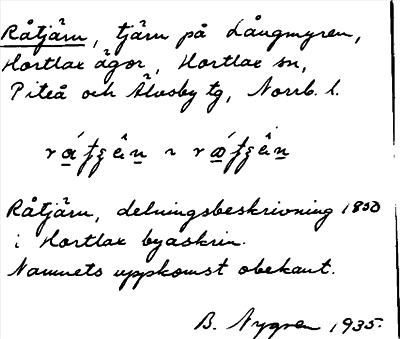 Råtjärn, tjärn på Långmyren,
Hortlax ägor, Hortlax sn,
Piteå och Älvsby tg, Norrb. l.
Råtjärn, delningsbeskrivning 1850
i Hortlax byaskrin.
Namnets uppkomst obekant.
B. Nygren 1935.